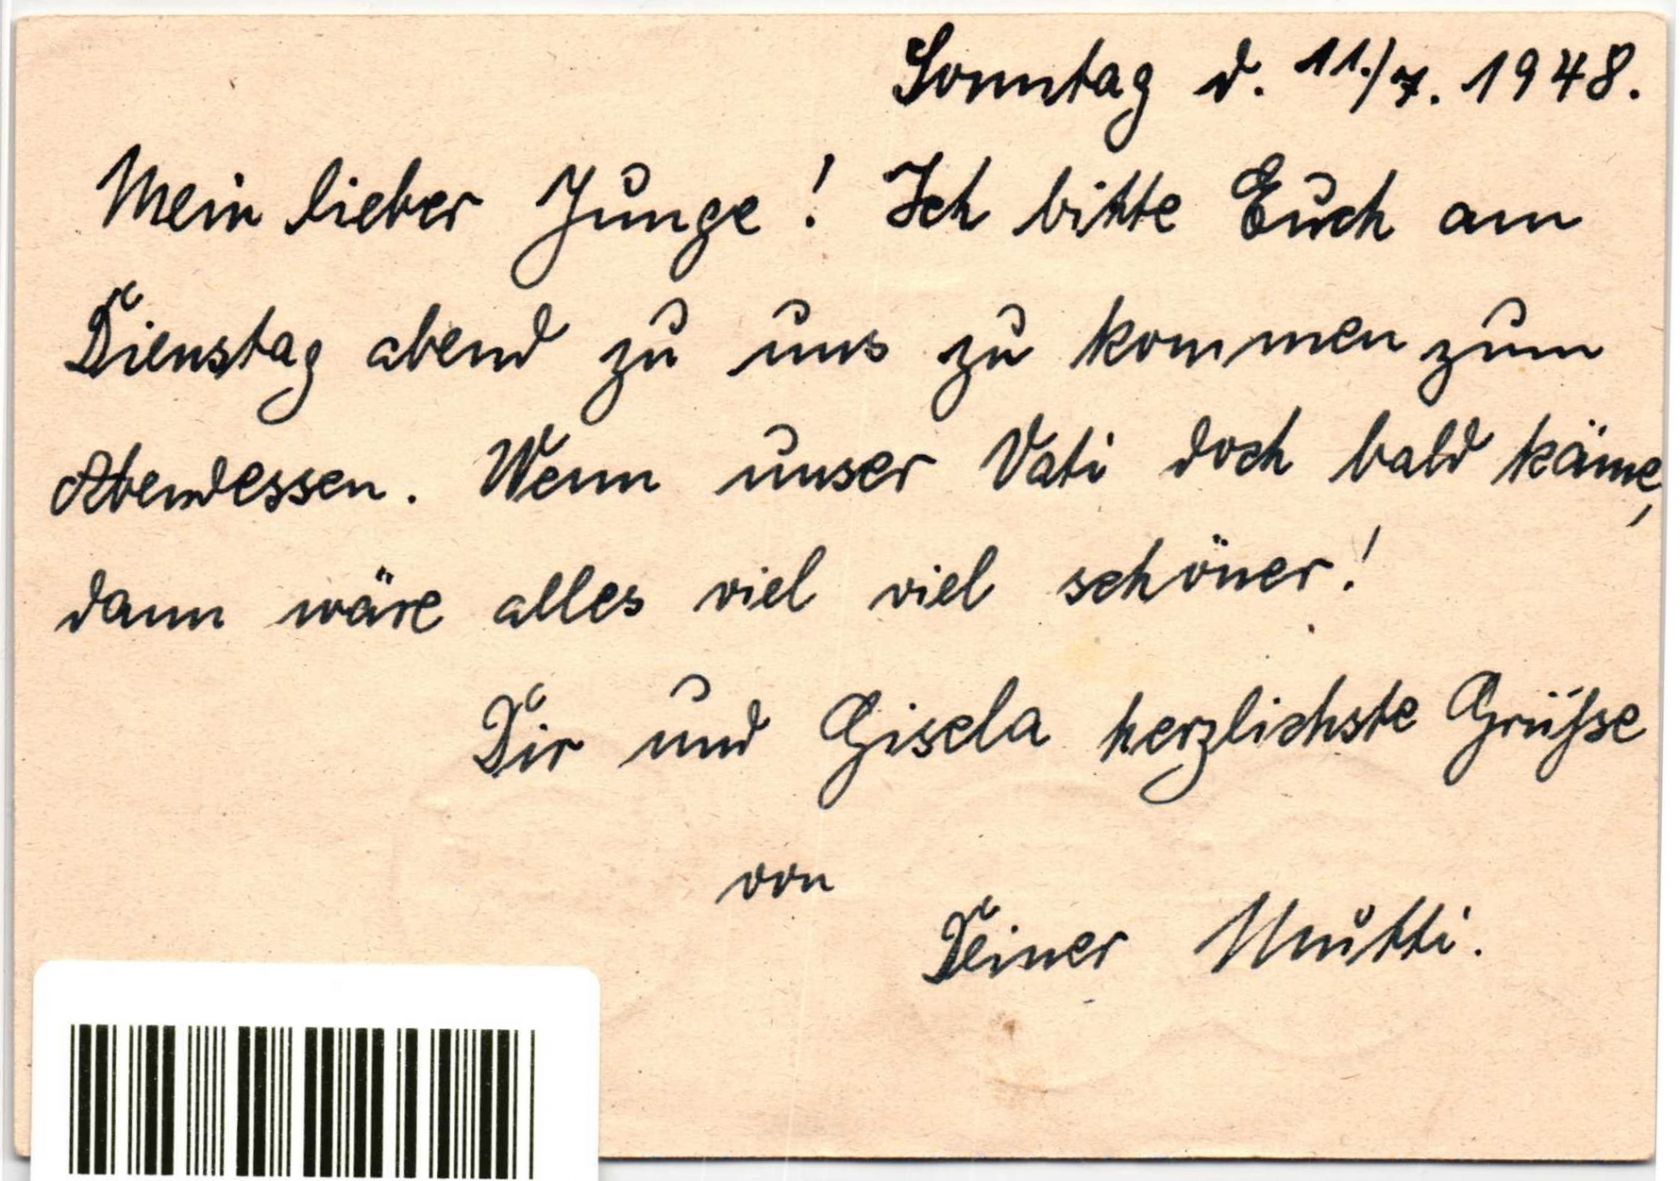 Sonntag d. 11./7. 1948.
Mein lieber Junge! Ich bitte Euch am
Dienstag abend zu uns zu kommen zum
Abendessen. Wenn unser Vati doch bald käme,
dann wäre alles viel viel schöner!
Dir und Gisela herzlichste Grüsse
von
Deiner Mutti.